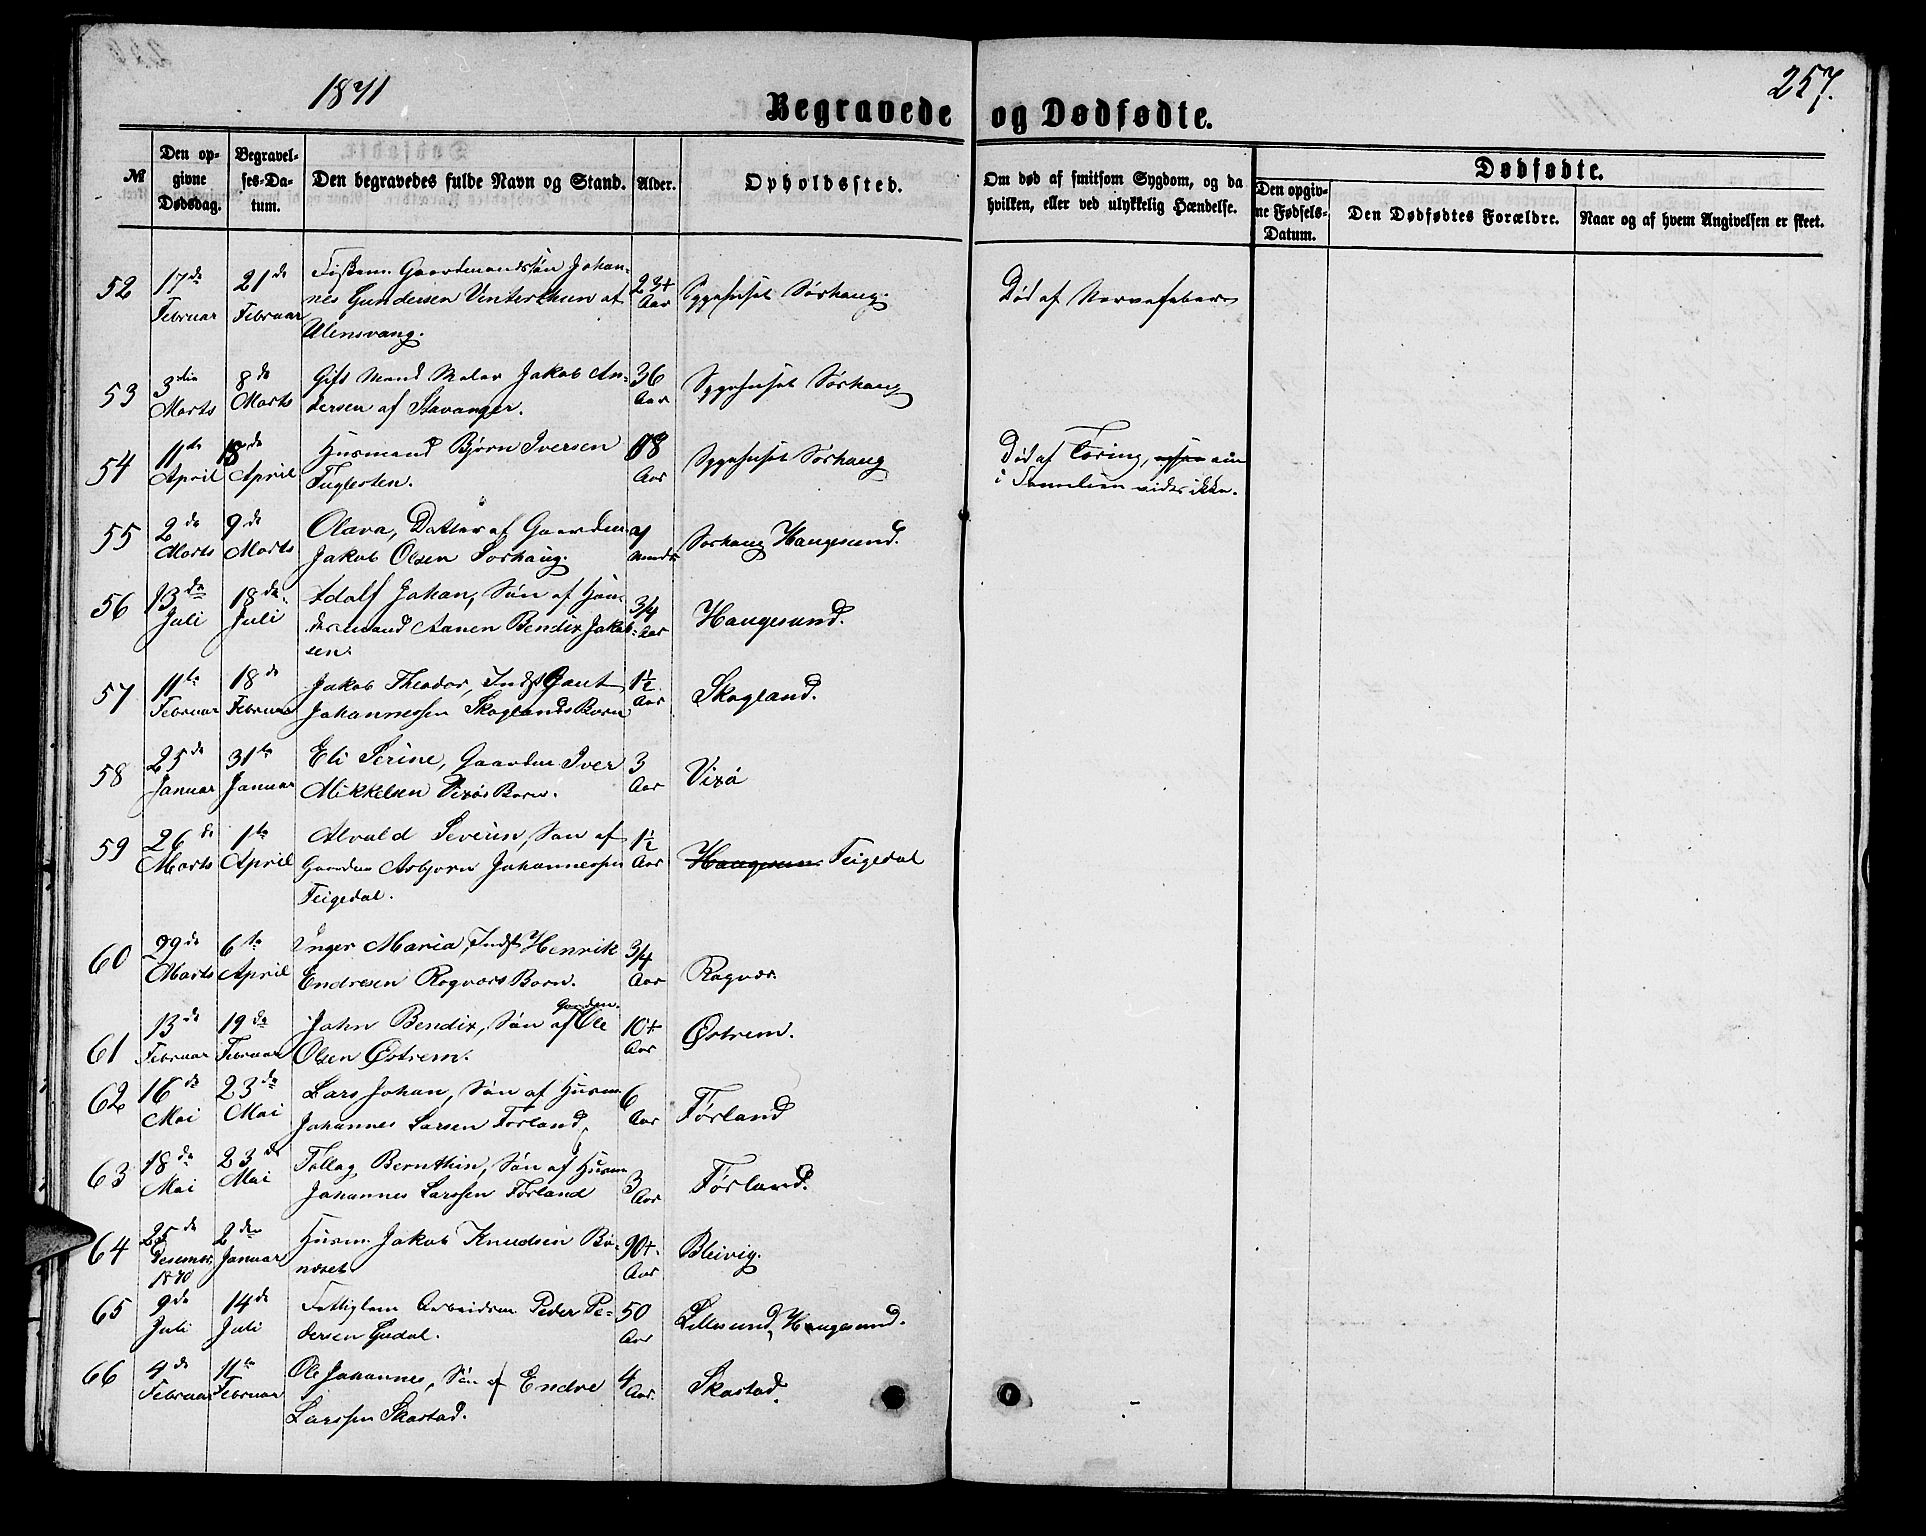 1871
257.
Begravede og Dødfødte.
№
Den opgivne Dødsdag.
Begravelses-Datum.
Den begravedes fulde Navn og Stand.
Alder.
Opholdssted.
Om død af smitsom Sygdom, og da hvilken, eller ved ulykkelig Hændelse.
Dødfødte.
Den opgivne Fødsels-Datum.
Den Dødfødtes Forældre.
Naar og af hvem Angivelsen er skeet.
52 17de Februar 21de Februar Gaardmandssøn Johan-
nes Gundersen Vinterthun af
Ullensvang.
23+ Aar Sygehuset Sørhaug. Død af Nervefeber
53 3die Marts 8de Marts Gift Mand Maler Jakob An-
dersen af Stavanger.
36 Aar Sygehuset Sørhaug
54 11te April 18de April Husmand Bjørn Iversen
Fuglesten.
Aar Sygehuset Sørhaug Død af Tæring,
i Familien vides ikke.
55 2de Marts 9de Marts Olava, Datter af Gaardm
Jakob Olsen Sørhaug.
Sørhaug Haugesund.
56 13de Juli 18de Juli Adolf Johan, Søn af Han-
delsmand Aanen Bendix Jakob-
sen.
3/4 Aar Haugesund.
57 11te Februar 18de Februar Jakob Theodor, Indst Gaut
Johannessen Skoglands Barn
1½ Aar Skogland.
58 25de Januar 31te Januar Eli Serine, Gaardm Iver
Mikkelsen Vixøs Barn.
3 Aar Vixø
59 26de Marts 1te April Alvald Severin, Søn af
Gaardm Asbjørn Johannessen
Feigedal.
1½ Aar Haugesun Feigedal
60 29de Marts 6te April Inger Maria, Indst Henrik
Endresen Røgværs Barn.
3/4 Aar Røgvær.
61 13de Februar 19de Februar John Bendix, Søn af Gaardm. Ole
Olsen Østrem.
10+ Aar Østrem.
62 16de Mai 23de Mai Lars Johan, Søn af Husm
Johannes Larsen Førland,
6 Aar Førland
63 18de Mai 23de Mai Tollag Bernthin, Søn af Husm
Johannes Larssen Førland
3 Aar Førland.
64 25de Desember 1870 2den Januar Husm. Jakob Knudsen Bø-
næset
90+ Aar Bleivig.
65 9de Juli 14de Juli Fattiglem Arbeidsm Peder Pe-
dersen Gudal.
50 Aar Lillesund, Haugesund.
66 4de Februar 11te Februar Ole Johannes, Søn af Endre
Larssen Skastad.
4 Aar. Skastad.